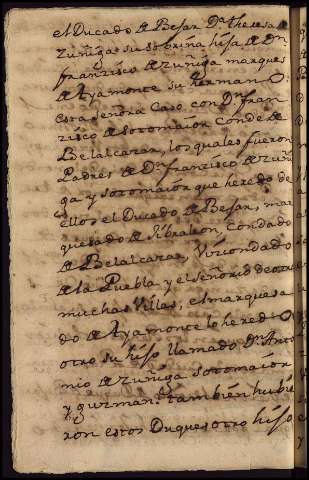 el Ducado de Bejar Dª theresa de
Zuñiga su sobrina hija de Dn
françisco de Zuñiga marques
de Ayamonte su hermano:
esta señora Caso con Dn fran
zisco de sotomaior conde de
Belalcazar, los quales fueron
Padres de Dn françisco de Zuñi
ga y sotomaior que heredo de
ellos el Ducado de Bejar, mar
quesado de Jibraleon, condado
de Belalcazar, Vizcondado
de la Puebla y el señorio de otras
muchas Villas, el marquesa
do de Ayamonte lo heredo
otro su hijo llamado Dn Anto
nio de Zuñiga sotomaior
y guzman: también hubie
ron estos Duques otro hijo